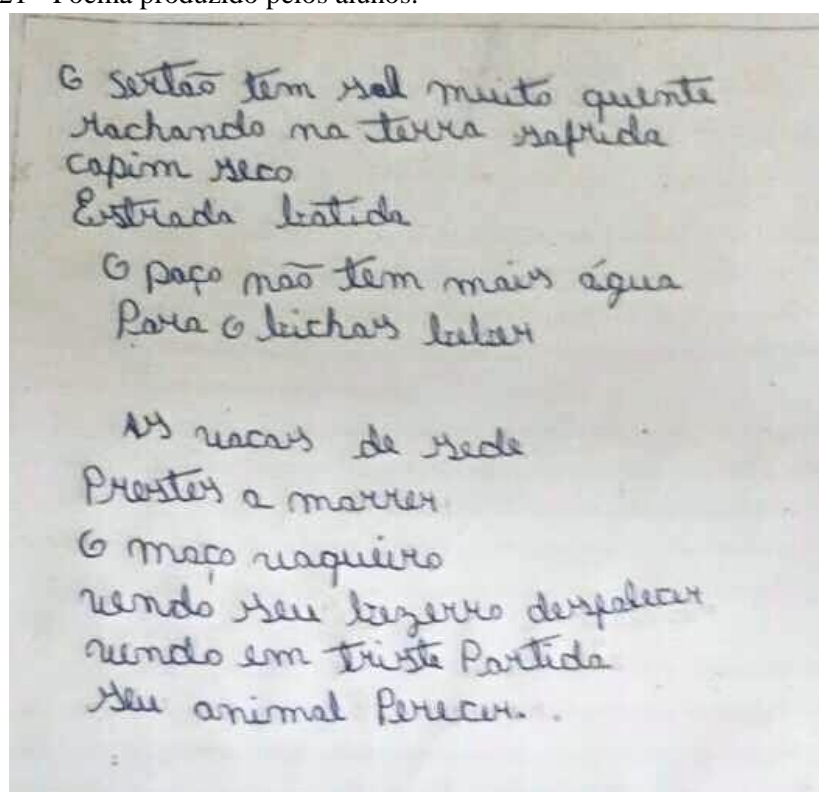 21 - Poema produzido pelos alunos.
O sertão tem sol muito quente
rachando na terra sofrida
capim seco
Estrada batida
O poço não tem mais água
Para o bichos beber
As vacas de sede
Prestes a morrer
O moço vaqueiro
vendo seu bezerro desfalecer
vendo em triste Partida
seu animal Perecer..